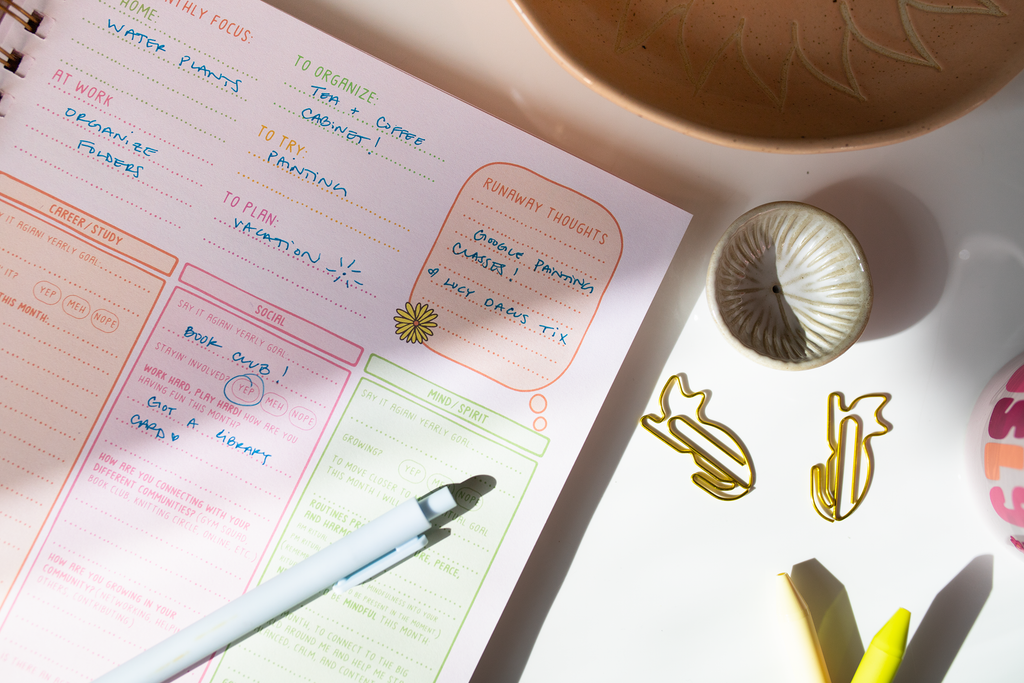 MONTHLY FOCUS:
HOME:
WATER PLANTS
AT WORK
ORGANIZE
FOLDERS
TO ORGANIZE:
TEA + COFFEE
CABINET!
TO TRY:
PAINTING
TO PLAN:
VACATION
RUNAWAY THOUGHTS
GOOGLE PAINTING
CLASSES!
♡ LUCY DACUS TIX
CAREER/STUDY
SAY IT AGAIN! YEARLY GOAL
IT?
YEP MEH NOPE
THIS MONTH:
SOCIAL
SAY IT AGAIN! YEARLY GOAL
BOOK CLUB!
STAYIN' INVOLVED? YEP MEH NOPE
WORK HARD, PLAY HARD! HOW ARE YOU
HAVING FUN THIS MONTH?
GOT A LIBRARY
CARD ♡
HOW ARE YOU CONNECTING WITH YOUR
DIFFERENT COMMUNITIES? (GYM SQUAD,
BOOK CLUB, KNITTING CIRCLE, ONLINE, ETC.)
HOW ARE YOU GROWING IN YOUR
COMMUNITY? (NETWORKING, HELPING
OTHERS, CONTRIBUTING)
IS THERE AN
MIND/SPIRIT
SAY IT AGAIN! YEARLY GOAL
GROWING?
YEP MEH NOPE
TO MOVE CLOSER TO
GOAL
THIS MONTH I WILL
ROUTINES
PEACE,
AND HARMONY
MINDFULNESS INTO YOUR
BE PRESENT IN THE MOMENT)
BE MINDFUL THIS MONTH
MONTH, TO CONNECT TO THE BIG
AROUND ME AND HELP ME
CALM, AND